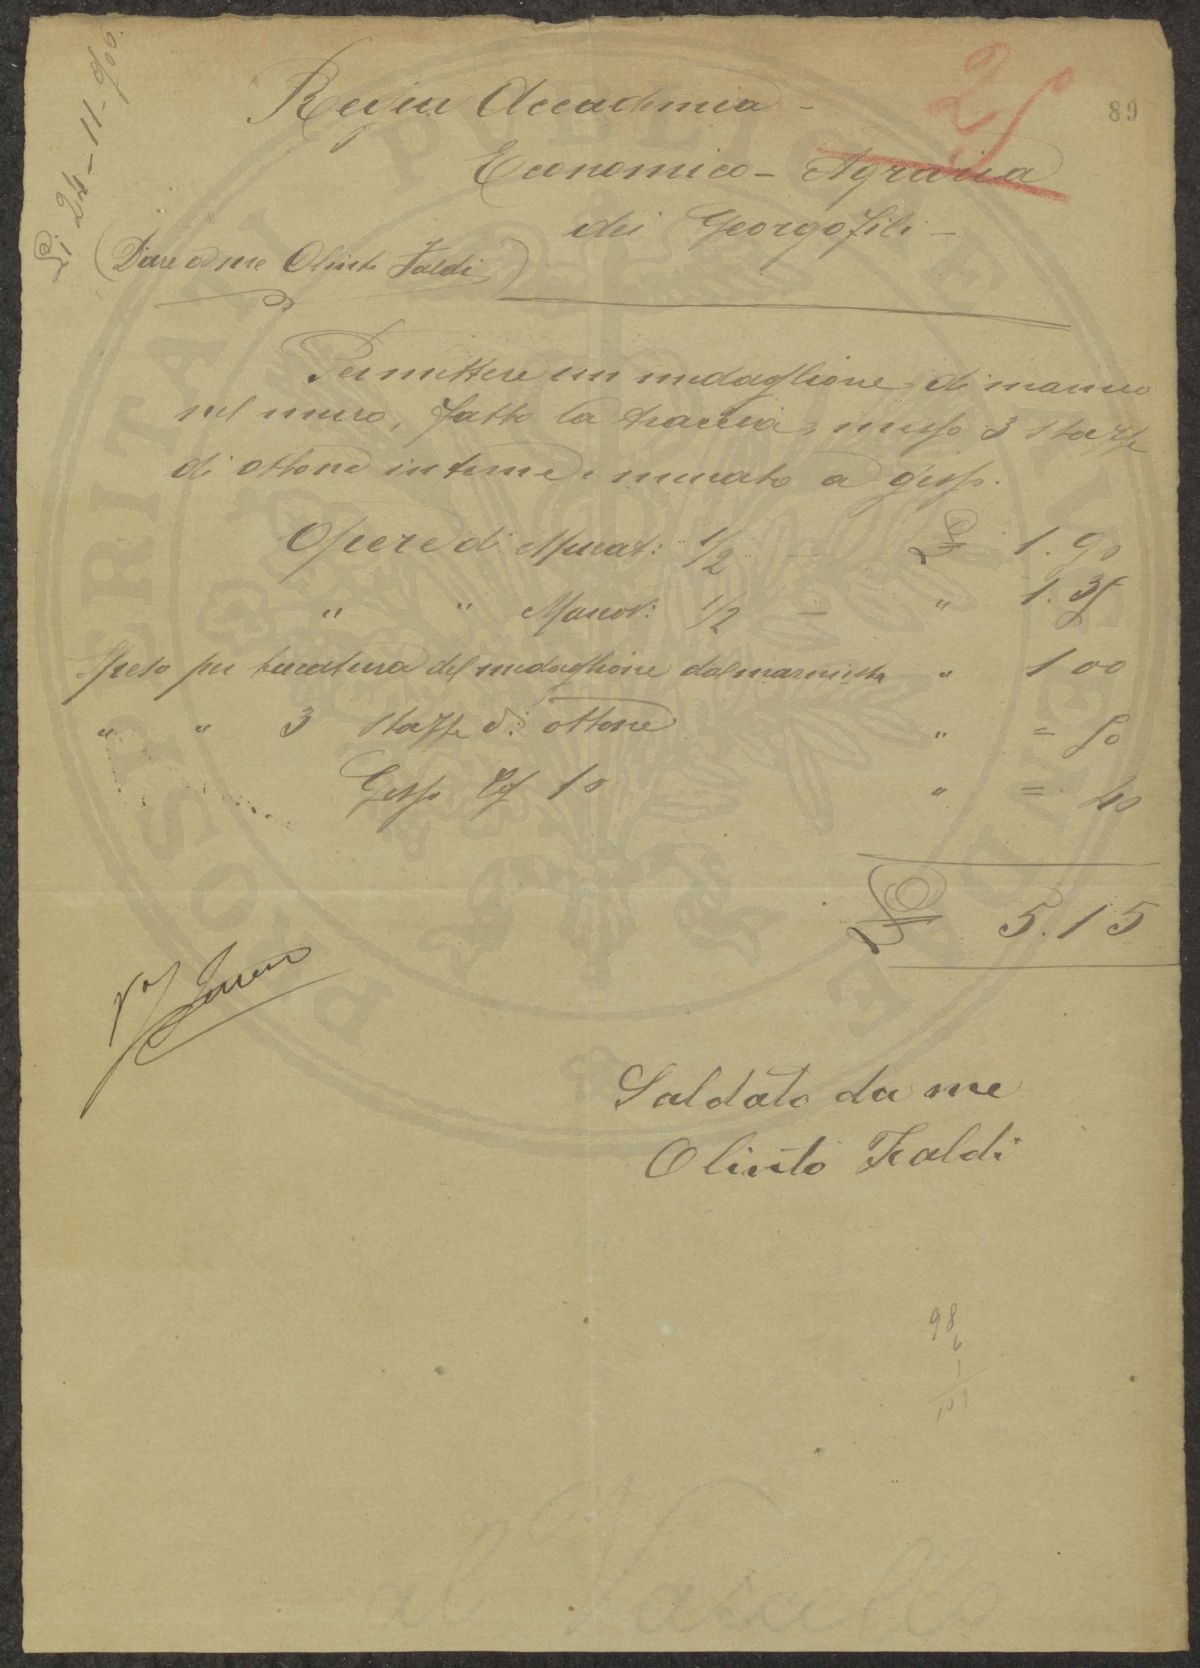 Li 24-11-900.
25
89
Regia Accademia -
Economico - Agraria
dei Georgofili -
(Dare a me Olinto Faldi)
Per mettere un medaglione di marmo
nel muro, fatto la traccia, messo 3 staffe
di ottone interne e murato a gesso.
Opere di Murat: 1/2 — £ 1.90
" " Manov: 1/2 — " 1.35
Speso per bucatura del medaglione dal marmista " 1 00
" " 3 staffe di ottone " = 50
Gesso Cg 10 " = 40
£ 5.15
Saldato da me
Olinto Faldi
98
6
1
PROSPERITATI PUBLICAE AUGENDAE